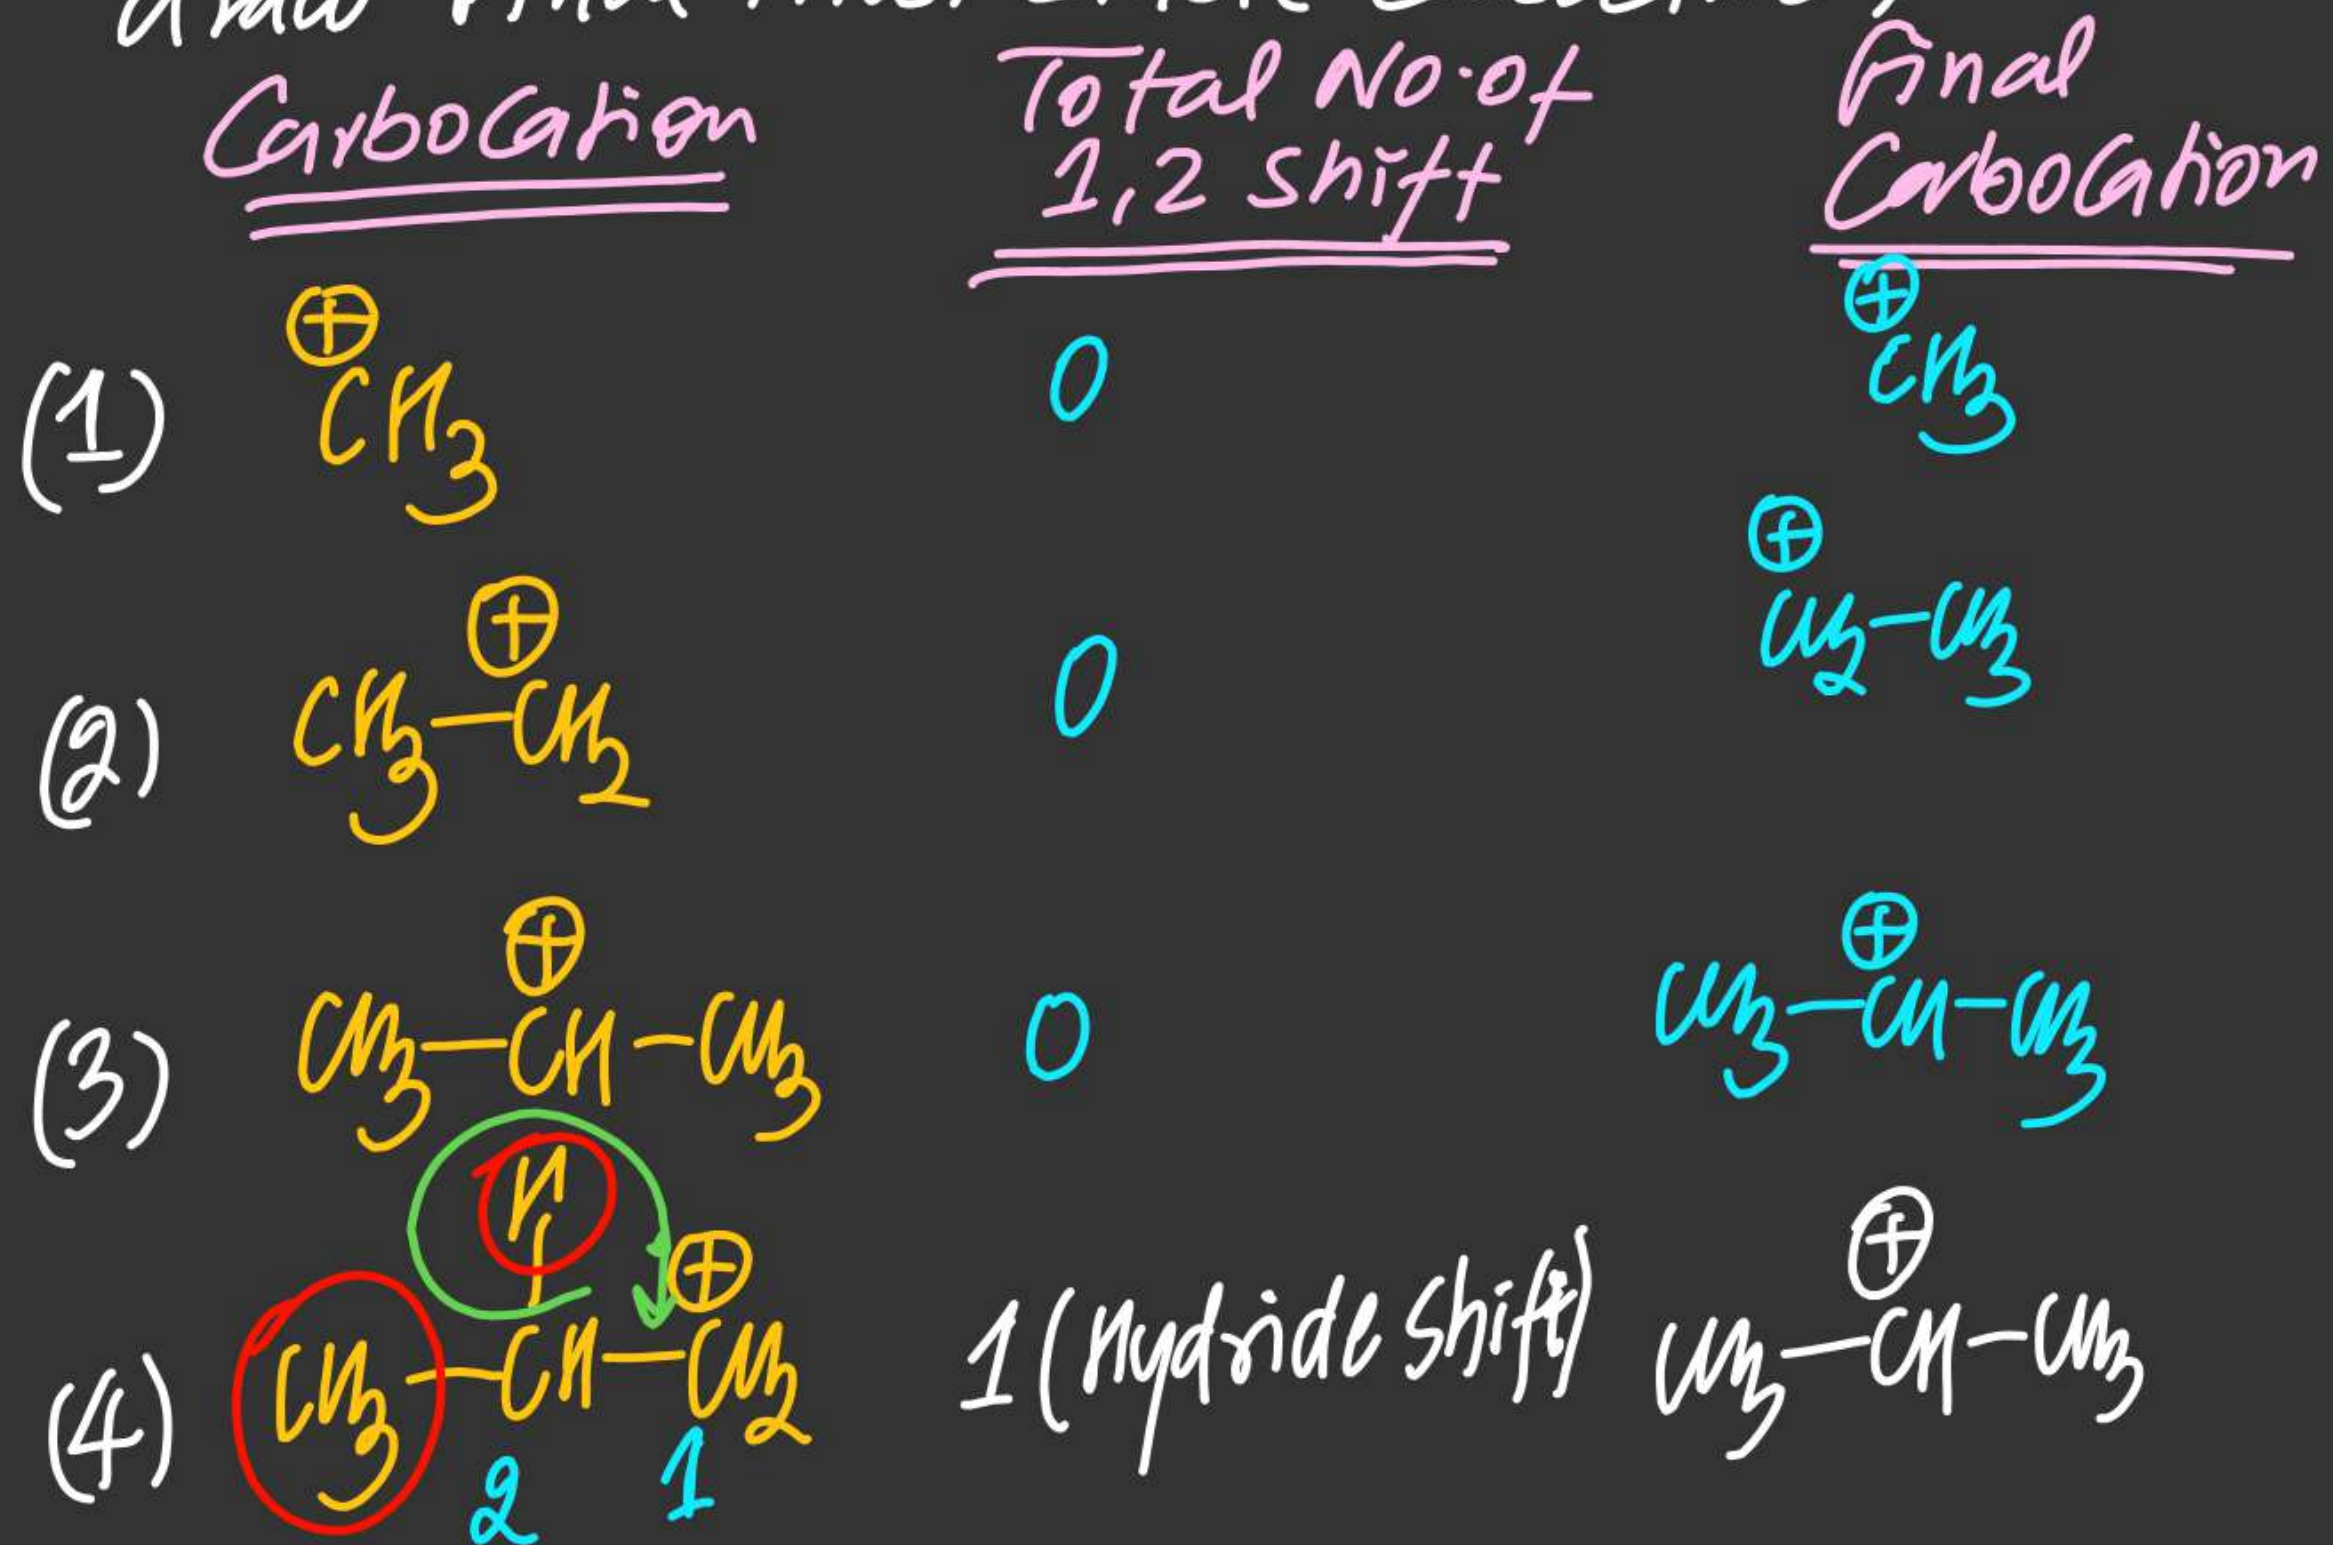 draw Final
Carbocation Total No. of 1,2 shift Final Carbocation
(1) ⊕CH3 0 ⊕CH3
(2) CH3–⊕CH2 0 ⊕CH2–CH3
(3) CH3–⊕CH–CH3 0 CH3–⊕CH–CH3
H
(4) CH3–CH–⊕CH2 1 (Hydride shift) CH3–⊕CH–CH3
2 1